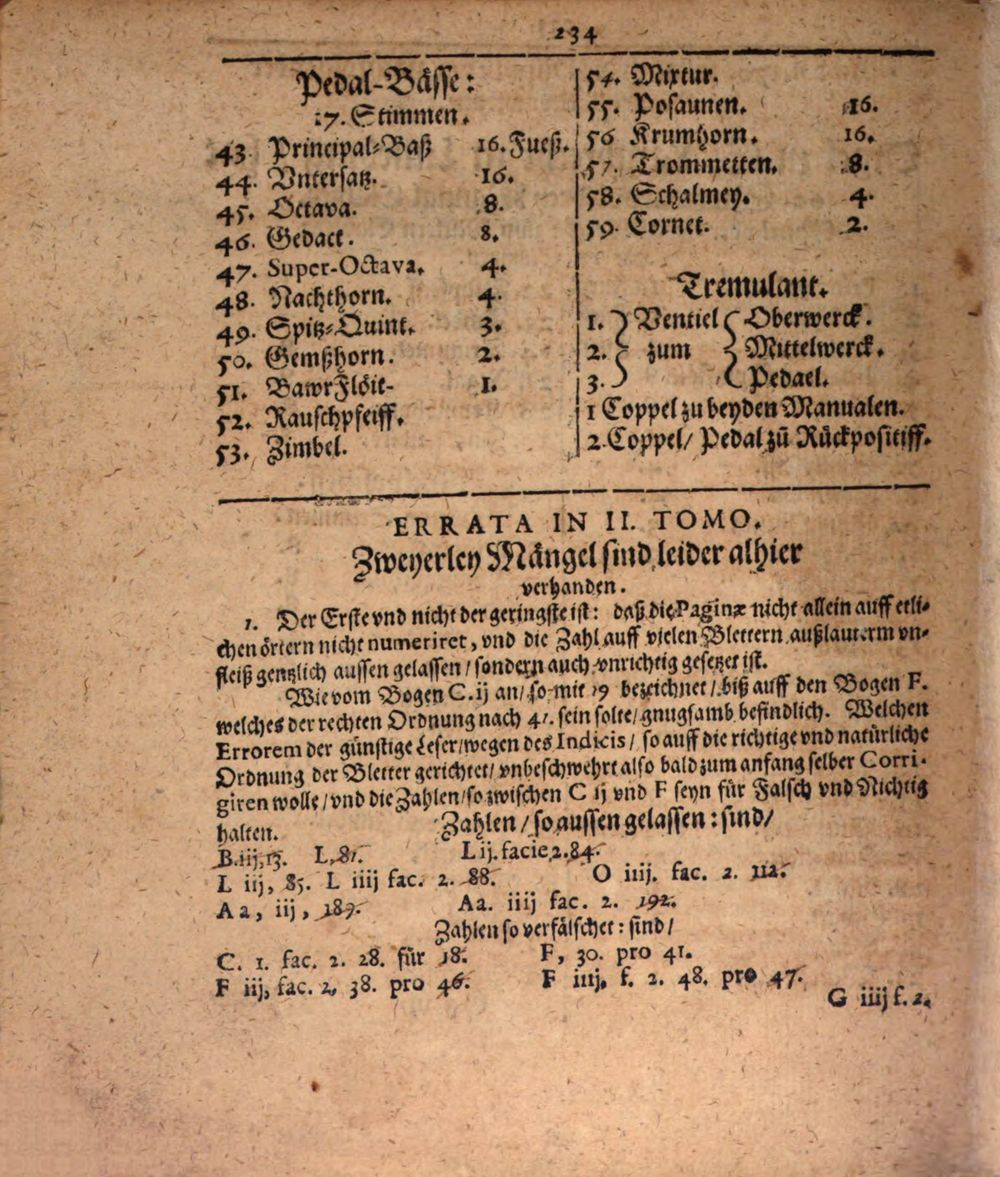 234
Pedal-Bässe:
17. Stimmen.
43. Principal-Baß 16. Fueß.
44. Vntersatz. 16.
45. Octava. 8.
46. Gedact. 8.
47. Super-Octava. 4.
48. Nachthorn. 4.
49. Spitz-Quint. 3.
50. Gemßhorn. 2.
51. BawrFlöit- 1.
52. Rauschpfeiff.
53. Zimbel.
54. Mixtur.
55. Posaunen. 16.
56 Krumhorn. 16.
57. Trommetten. 8.
58. Schalmey. 4.
59. Cornet. 2.
Tremulant.
1. Ventiel Oberwerck.
2. zum Mittelwerck.
3. Pedael.
1 Coppel zu beyden Manualen.
2. Coppel/ Pedal zū Rückpositiff.
ERRATA IN II. TOMO.
Zweyerley Mängel sind leider alhier
verhanden.
1. Der Erste vnd nicht der geringste ist: daß die Paginæ nicht allein auff etli-
chen örtern nicht numeriret, vnd die Zahl auff vielen Blettern außlauterm vn-
fleiß gentzlich aussen gelassen/ sondern auch vnrichtig gesetzet ist.
Wie vom Bogen C. ij an/ so mit 19 bezeichnet/ biß auff den Bogen F.
welches der rechten Ordnung nach 41. sein solte/ gnugsamb befindlich. Welchen
Errorem der günstige Leser/ wegen des Indicis/ so auff die richtige vnd natürliche
Ordnung der Bletter gerichtet/ vnbeschwehrt also bald zum anfang selber Corri-
giren wolle/ vnd die Zahlen/ so zwischen C ij vnd F seyn für Falsch vnd Nichtig
halten.
Zahlen/ so aussen gelassen: sind/
B. iij, 13. L, 81. L ij. facie, 2. 84.
L iij, 85. L iiij fac. 2. 88. O iiij. fac. 2. 112.
Aa, iij, 189. Aa. iiij fac. 2. 192.
Zahlen so verfälschet: sind/
C. 1. fac. 2. 28. für 18. F, 30. pro 41.
F iij, fac. 2, 38. pro 46. F iiij, f. 2. 48. pro 47.
G iiij f. 2.